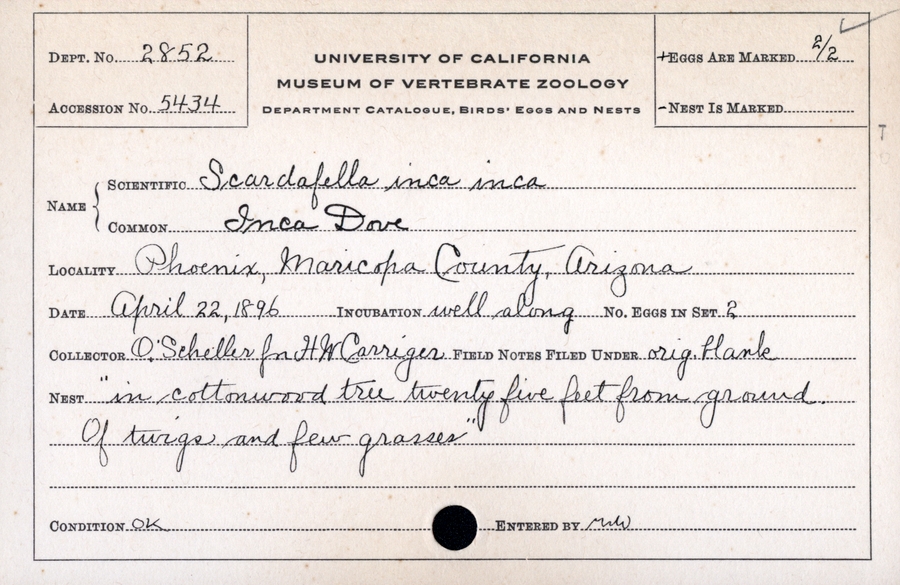 DEPT. No. 2852
ACCESSION No. 5434
UNIVERSITY OF CALIFORNIA
MUSEUM OF VERTEBRATE ZOOLOGY
DEPARTMENT CATALOGUE, BIRDS' EGGS AND NESTS
+EGGS ARE MARKED 2/2
-NEST IS MARKED
NAME
SCIENTIFIC Scardafella inca inca
COMMON Inca Dove
LOCALITY Phoenix, Maricopa County, Arizona
DATE April 22, 1896 INCUBATION well along NO. EGGS IN SET 2
COLLECTOR O. Scheller fn H W Carriger FIELD NOTES FILED UNDER orig. blank
NEST "in cottonwood tree twenty five feet from ground.
Of twigs and few grasses"
CONDITION OK ENTERED BY